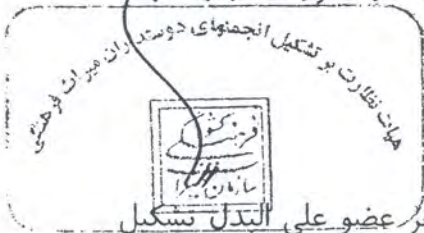 هیات نظارت بر تشکیل انجمنهای دوستداران میراث فرهنگی
سازمان میراث
فرهنگی کشور
عضو علی البدل تشکیل